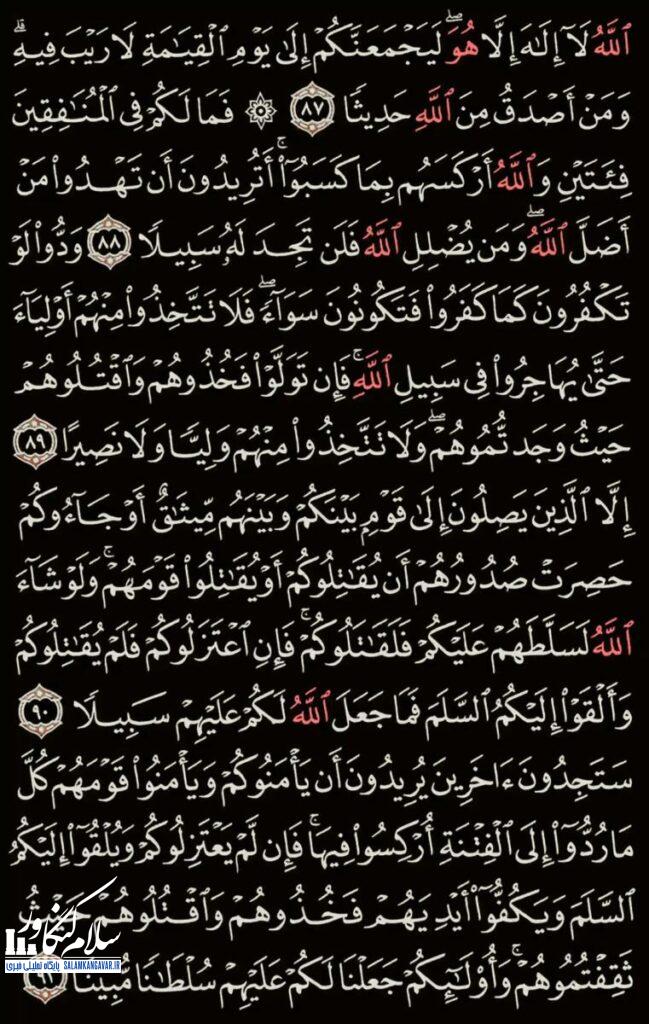 ٱللَّهُ لَآ إِلَٰهَ إِلَّا هُوَۖ لَيَجْمَعَنَّكُمْ إِلَىٰ يَوْمِ ٱلْقِيَٰمَةِ لَا رَيْبَ فِيهِۗ
وَمَنْ أَصْدَقُ مِنَ ٱللَّهِ حَدِيثًا ٨٧ ۞ فَمَا لَكُمْ فِى ٱلْمُنَٰفِقِينَ
فِئَتَيْنِ وَٱللَّهُ أَرْكَسَهُم بِمَا كَسَبُوٓا۟ۚ أَتُرِيدُونَ أَن تَهْدُوا۟ مَنْ
أَضَلَّ ٱللَّهُۖ وَمَن يُضْلِلِ ٱللَّهُ فَلَن تَجِدَ لَهُۥ سَبِيلًا ٨٨ وَدُّوا۟ لَوْ
تَكْفُرُونَ كَمَا كَفَرُوا۟ فَتَكُونُونَ سَوَآءًۖ فَلَا تَتَّخِذُوا۟ مِنْهُمْ أَوْلِيَآءَ
حَتَّىٰ يُهَاجِرُوا۟ فِى سَبِيلِ ٱللَّهِۚ فَإِن تَوَلَّوْا۟ فَخُذُوهُمْ وَٱقْتُلُوهُمْ
حَيْثُ وَجَدتُّمُوهُمْۖ وَلَا تَتَّخِذُوا۟ مِنْهُمْ وَلِيًّا وَلَا نَصِيرًا ٨٩
إِلَّا ٱلَّذِينَ يَصِلُونَ إِلَىٰ قَوْمٍۭ بَيْنَكُمْ وَبَيْنَهُم مِّيثَٰقٌ أَوْ جَآءُوكُمْ
حَصِرَتْ صُدُورُهُمْ أَن يُقَٰتِلُوكُمْ أَوْ يُقَٰتِلُوا۟ قَوْمَهُمْۚ وَلَوْ شَآءَ
ٱللَّهُ لَسَلَّطَهُمْ عَلَيْكُمْ فَلَقَٰتَلُوكُمْۚ فَإِنِ ٱعْتَزَلُوكُمْ فَلَمْ يُقَٰتِلُوكُمْ
وَأَلْقَوْا۟ إِلَيْكُمُ ٱلسَّلَمَ فَمَا جَعَلَ ٱللَّهُ لَكُمْ عَلَيْهِمْ سَبِيلًا ٩٠
سَتَجِدُونَ ءَاخَرِينَ يُرِيدُونَ أَن يَأْمَنُوكُمْ وَيَأْمَنُوا۟ قَوْمَهُمْ كُلَّ
مَا رُدُّوٓا۟ إِلَى ٱلْفِتْنَةِ أُرْكِسُوا۟ فِيهَاۚ فَإِن لَّمْ يَعْتَزِلُوكُمْ وَيُلْقُوٓا۟ إِلَيْكُمُ
ٱلسَّلَمَ وَيَكُفُّوٓا۟ أَيْدِيَهُمْ فَخُذُوهُمْ وَٱقْتُلُوهُمْ حَيْثُ
ثَقِفْتُمُوهُمْۚ وَأُو۟لَٰٓئِكُمْ جَعَلْنَا لَكُمْ عَلَيْهِمْ سُلْطَٰنًا مُّبِينًا ٩١
سلام کنگاور
پایگاه تحلیلی خبری SALAMKANGAVAR.IR